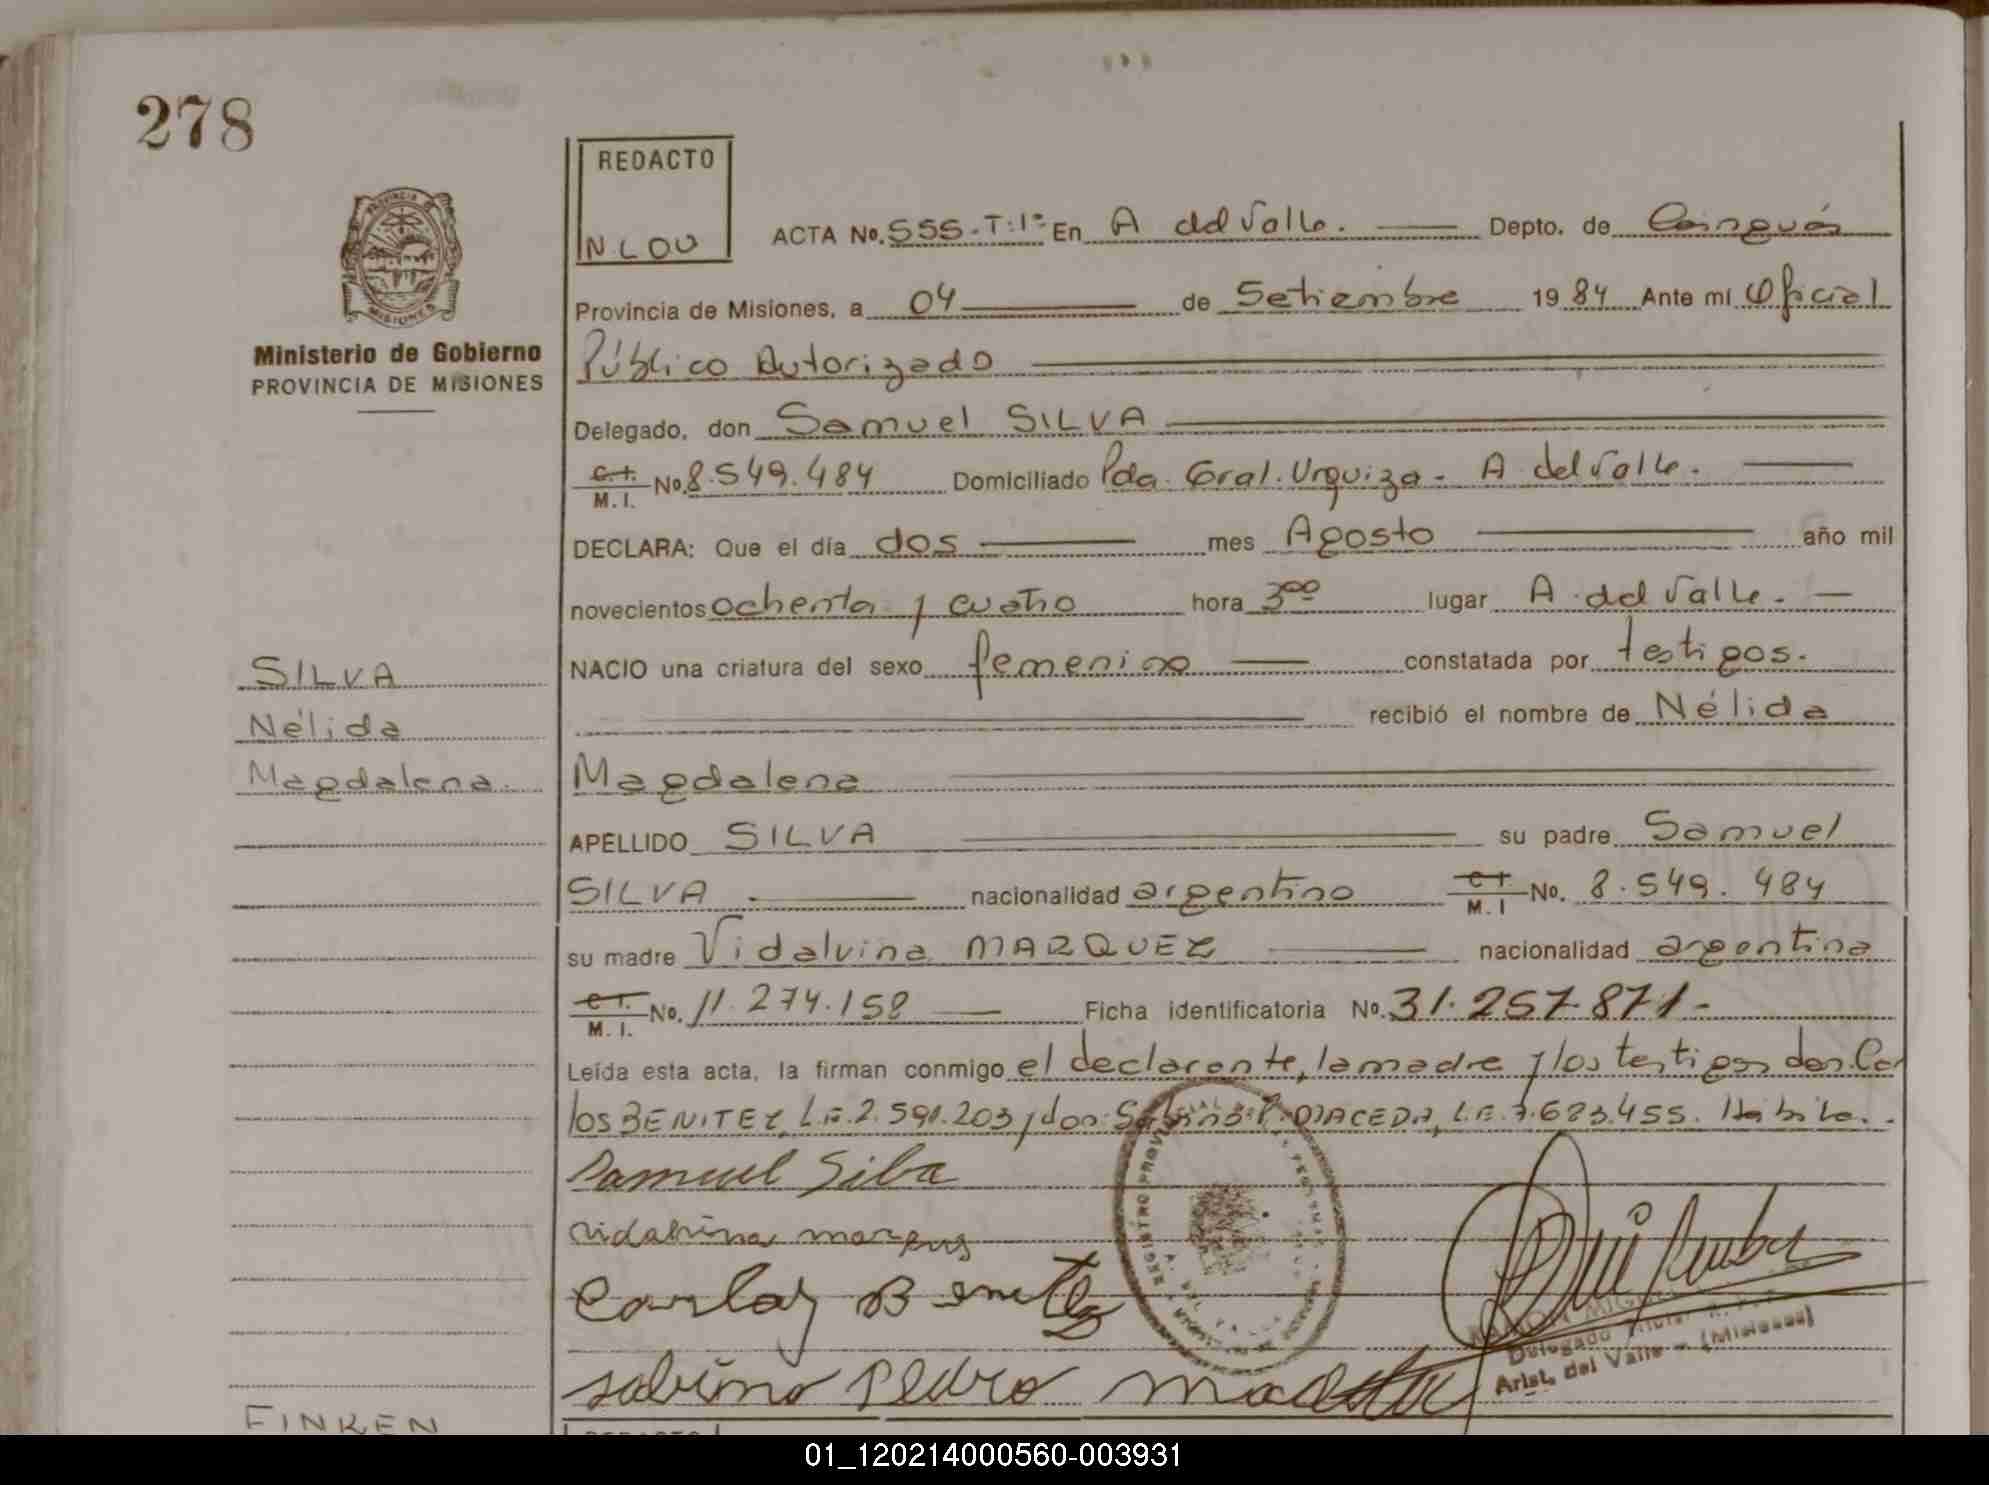 278
REDACTO
N. LOU
PROVINCIA DE
MISIONES
Ministerio de Gobierno
PROVINCIA DE MISIONES
ACTA No. 555-T:1º En A del Valle. Depto. de Cainguás
Provincia de Misiones, a 04 de Setiembre 1984 Ante mi Oficial
Público Autorizado
Delegado, don Samuel SILVA
C.I. M.I. No. 8.549.484 Domiciliado Pda. Gral. Urquiza - A del Valle.
DECLARA: Que el día dos mes Agosto año mil
novecientos ochenta y cuatro hora 3⁰⁰ lugar A. del Valle.
NACIO una criatura del sexo femenino constatada por testigos.
recibió el nombre de Nélida
Magdalena
APELLIDO SILVA su padre Samuel
SILVA nacionalidad argentino C.I. M.I No. 8.549.484
su madre Vidalvina MARQUEZ nacionalidad argentina
C.I. M.I. No. 11.274.158 Ficha identificatoria No. 31.257.871-
Leída esta acta, la firman conmigo el declarante, la madre y los testigos don Car
los BENITEZ, L.E. 2.591.203 y don Sabino P. MACEDA, L.E. 7.623.455.
SILVA
Nélida
Magdalena.
Samuel Silba
Carlos Benitez
sabino Pedro
REGISTRO PROVINCIAL
A. DEL VALLE
Delegado
Arist. del Valle - (Misiones)
FINKEN
REDACTO
01_120214000560-003931